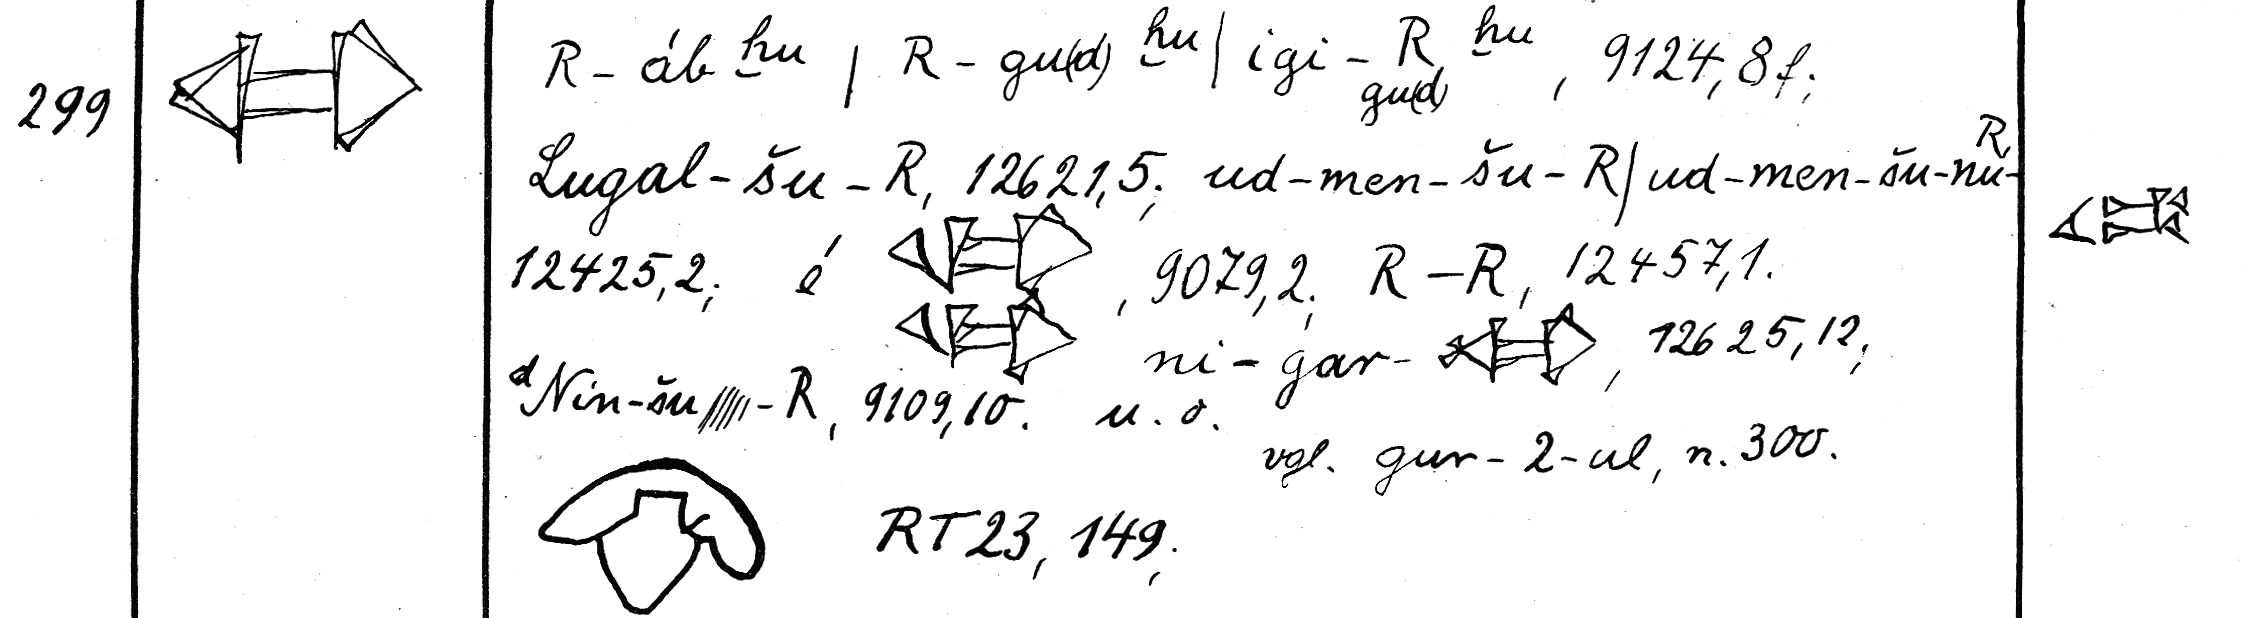 299
R - áb ḫu / R - gu(d) ḫu / igi - R ḫu, 9124,8f;
gu(d)
Lugal - šu - R, 12621,5; ud-men-šu-R / ud-men-šu-nu-R
12425,2; é , 9079,2; R - R, 12457,1.
ni - gar- , 12625,12;
ᵈNin-šu////-R, 9109,10. u. ö.
vgl. gur-2-ul, n. 300.
RT 23, 149;